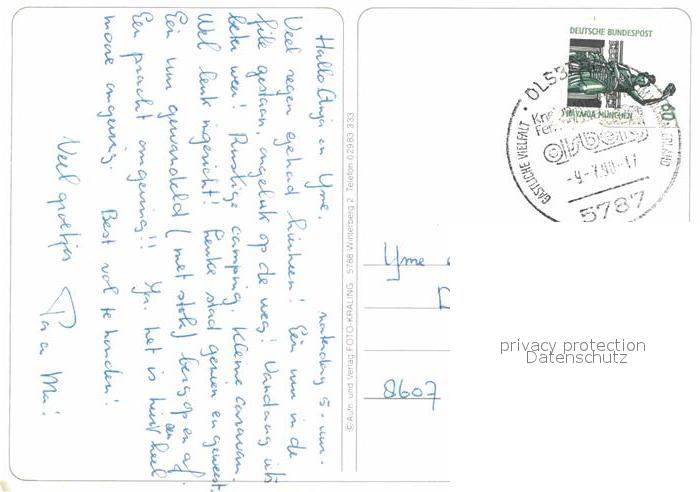 Hallo Anja en Yme,
maandag 5-uur.
Veel regen gehad hierheen! Een uur in de
file gestaan, ongeluk op de weg! Vandaag iets
beter weer! Rustige camping. Kleine caravan.
Wel leuk ingericht! Leuke stad gezien en geweest.
Een uur gewandeld (met stok) bergop en af
Een pracht omgeving!! Ja, het is hier een heel
mooie omgeving. Best vol te houden!
Veel groetjes
Pa en Ma!
© Aufn. und Verlag FOTO-KRALING 5788 Winterberg 2 Telefon 02983 333
DEUTSCHE BUNDESPOST
60
BAVARIA MÜNCHEN
OLSBERG
GASTLICHE VIELFALT
olsberg
-9.-7.90-17
5787
Yme
8607
privacy protection
Datenschutz